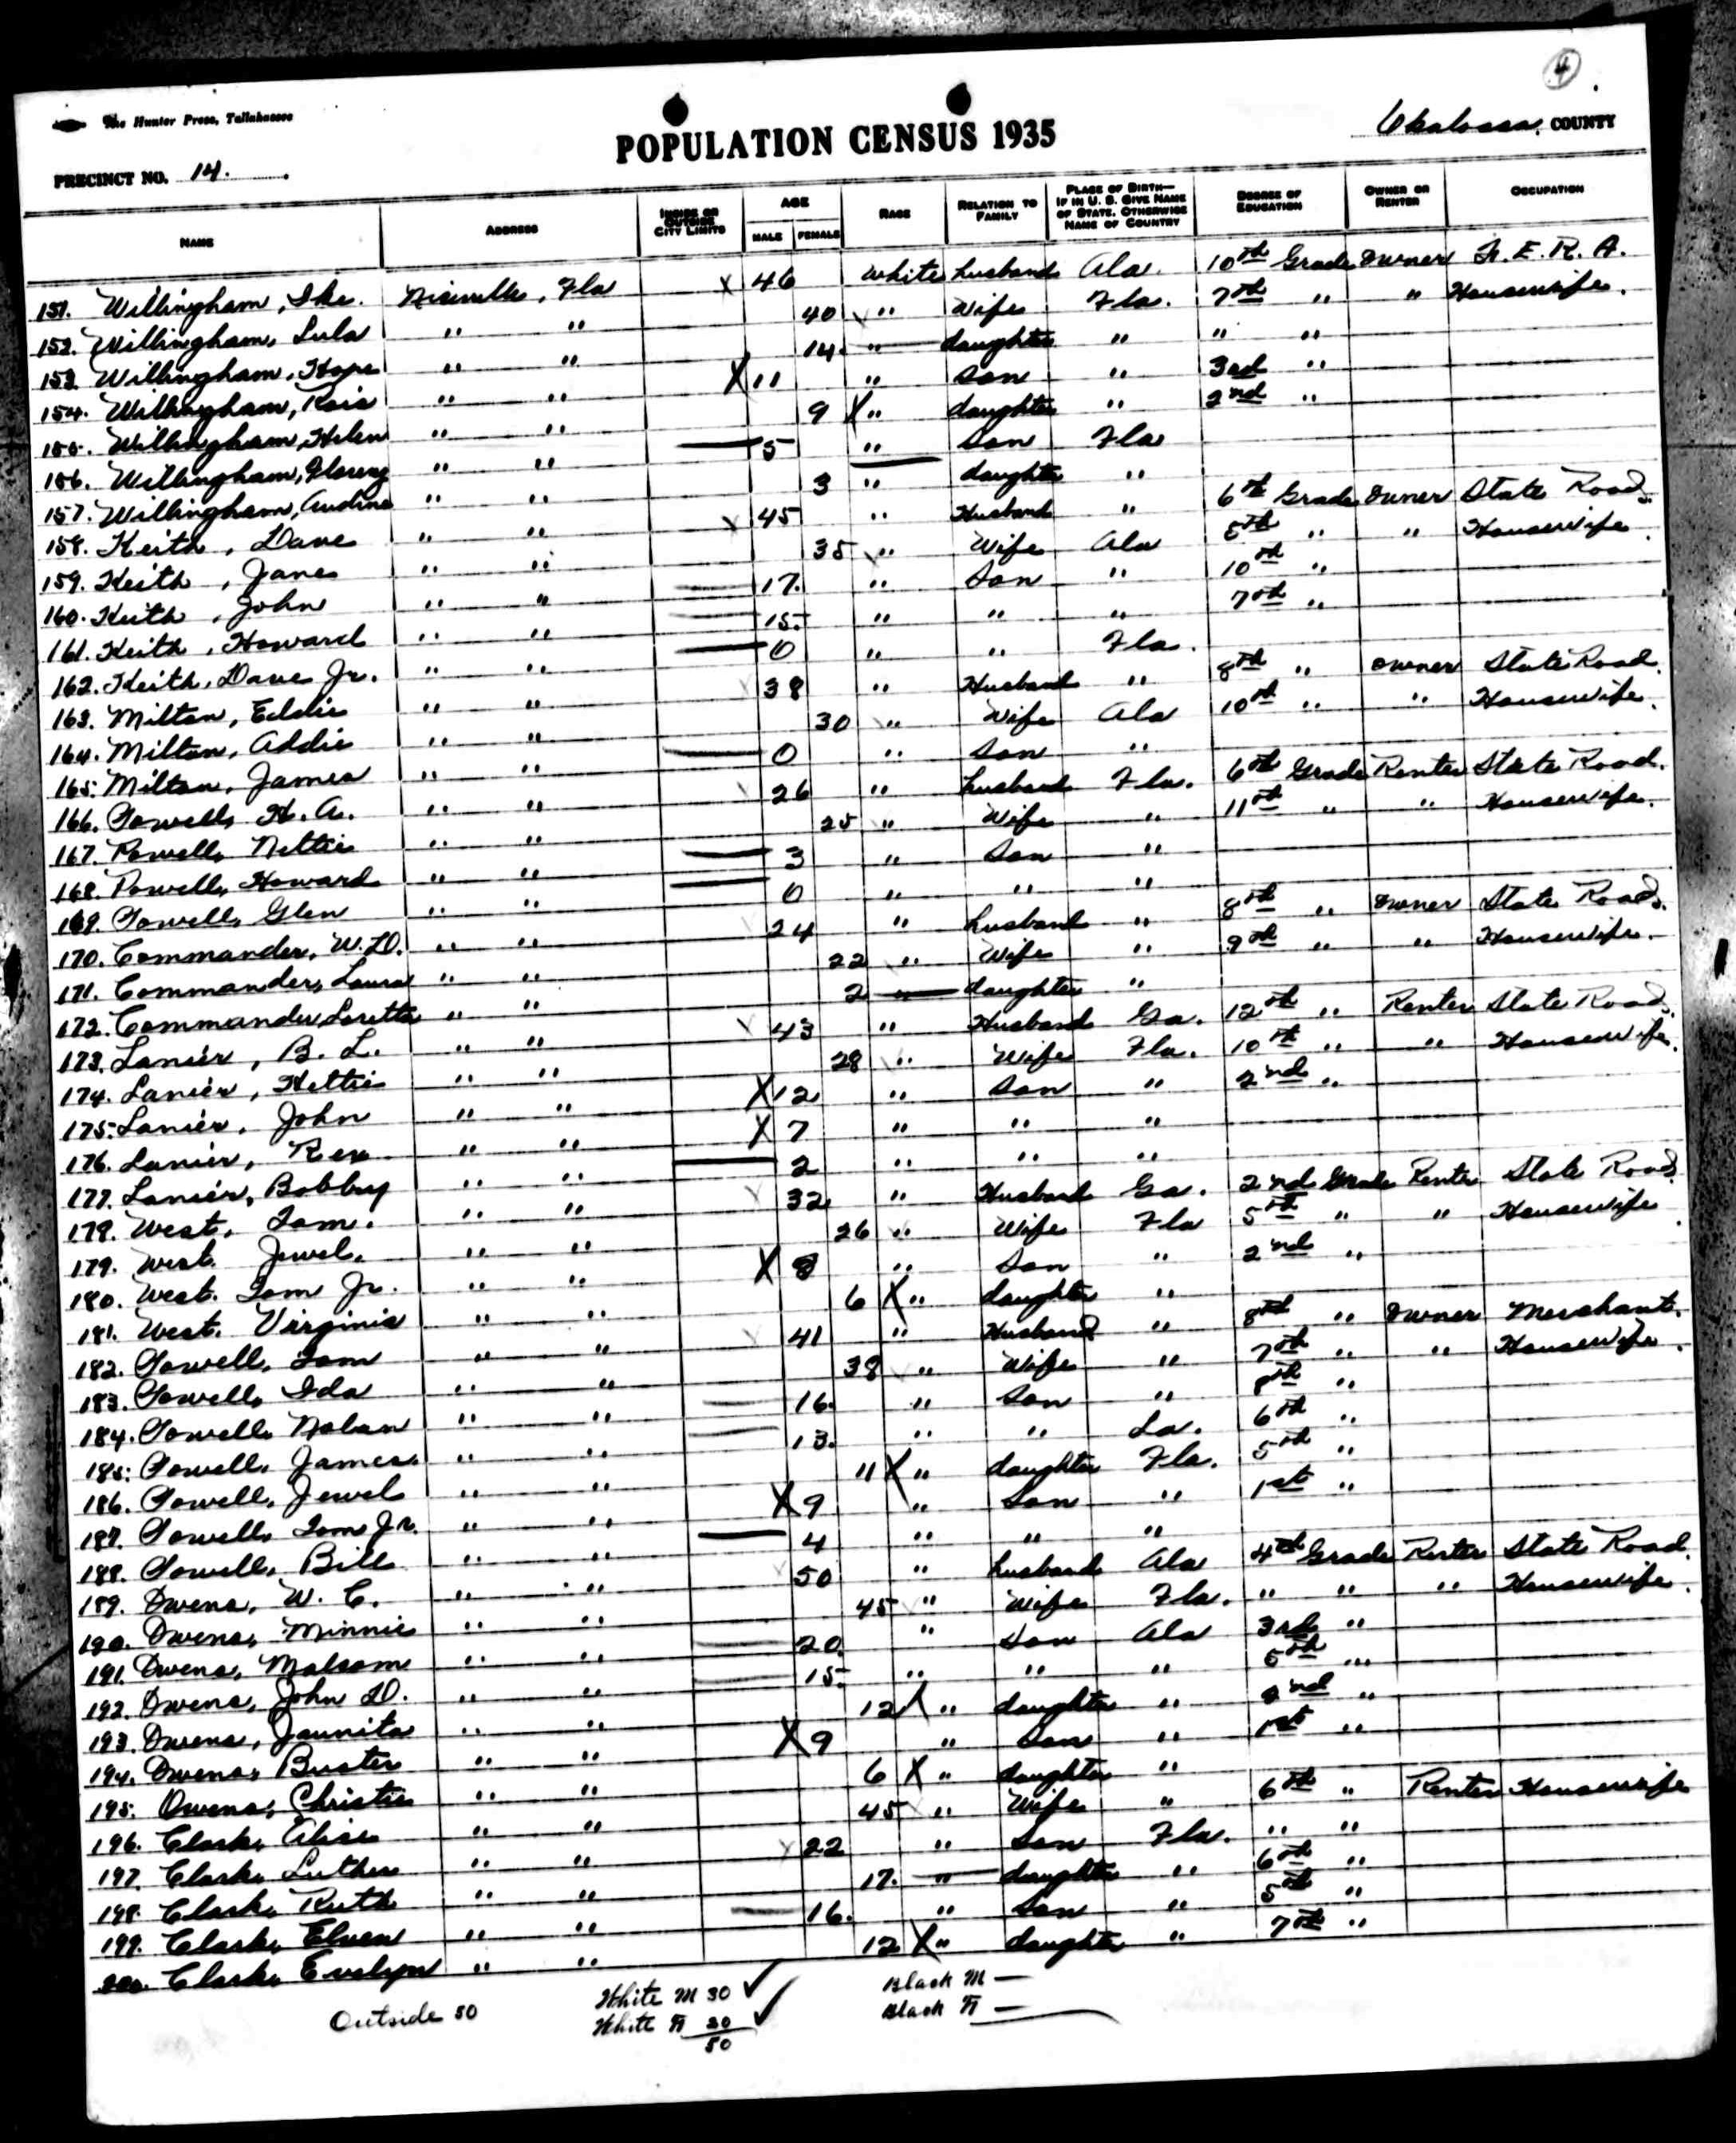 4
The Hunter Press, Tallahassee
POPULATION CENSUS 1935
Okaloosa COUNTY
PRECINCT NO. 14.
NAME ADDRESS INSIDE OR OUTSIDE CITY LIMITS AGE MALE FEMALE RACE RELATION TO FAMILY PLACE OF BIRTH—IF IN U. S. GIVE NAME OF STATE, OTHERWISE NAME OF COUNTRY DEGREE OF EDUCATION OWNER OR RENTER OCCUPATION
151. Willingham, Ike. Niceville, Fla X 46 White husband Ala. 10th Grade Owner F. E. R. A.
152. Willingham, Lula " " 40 " Wife Fla. 7th " " Housewife.
153. Willingham, Hope " " 14. " daughter " " "
154. Willingham, Rois " " X 11 " Son " 3rd "
155. Willingham, Helen " " 9 X " daughter " 2nd "
156. Willingham, " " 5 " Son Fla
157. Willingham, Audine " " 3 " daughter "
158. Keith, Dave " " 45 " Husband " 6th Grade Owner State Road.
159. Keith, Jane " " 35 " Wife Ala 8th " " Housewife.
160. Keith, John " " 17. " Son " 10th "
161. Keith, Howard " " 15. " " " 7th "
162. Keith, Dave Jr. " " 0 " " Fla.
163. Milton, Eddie " " 38 " Husband " 8th " owner State Road.
164. Milton, Addie " " 30 " Wife Ala 10th " " Housewife.
165. Milton, James " " 0 " Son "
166. Powell, H. A. " " 26 " husband Fla. 6th Grade Renter State Road.
167. Powell, Nettie " " 25 " Wife " 11th " " Housewife.
168. Powell, Howard " " 3 " Son "
169. Powell, Glen " " 0 " " "
170. Commander, W. D. " " 24 " husband " 8th " Owner State Road.
171. Commander, Laura " " 22 " Wife " 9th " " Housewife.
172. Commander, Loretta " " 2 " daughter "
173. Lanier, B. L. " " 43 " Husband Ga. 12th " Renter State Road.
174. Lanier, Hettie " " 28 " Wife Fla. 10th " " Housewife.
175. Lanier, John " " X 12 " Son " 2nd "
176. Lanier, Rex " " X 7 " " "
177. Lanier, Bobby " " 2 " " "
178. West, Tom. " " 32 " Husband Ga. 2nd Grade Renter State Road.
179. West, Jewel. " " 26 " Wife Fla 5th " " Housewife.
180. West, Tom Jr. " " X 8 " Son " 2nd "
181. West, Virginia " " 6 X " daughter "
182. Powell, Tom " " 41 " Husband " 8th " Owner Merchant.
183. Powell, Ida " " 38 " Wife " 7th " " Housewife.
184. Powell, Nolan " " 16. " Son " 8th "
185. Powell, James " " 13. " " La. 6th "
186. Powell, Jewel " " 11 X " daughter Fla. 5th "
187. Powell, Tom Jr. " " X 9 " Son " 1st "
188. Powell, Bill " " 4 " " "
189. Owens, W. C. " " 50 " husband Ala 4th Grade Renter State Road.
190. Owens, Minnie " " 45 " Wife Fla. " " " Housewife.
191. Owens, Malcom " " 20. " Son Ala 3rd "
192. Owens, John D. " " 15. " " " 5th "
193. Owens, Jaunita " " 12 X " daughter " 2nd "
194. Owens, Buster " " X 9 " Son " 1st "
195. Owens, Christie " " 6 X " daughter "
196. Clark, Alice " " 45 " Wife " 6th " Renter Housewife
197. Clark, Luther " " 22 " Son Fla. " "
198. Clark, Ruth " " 17. " daughter " 6th "
199. Clark, Elven " " 16. " Son " 5th "
200. Clark, Evelyn " " 12 X " daughter " 7th "
Outside 50 White M 30 ✓ Black M —
White F 20 ✓ Black F —
50